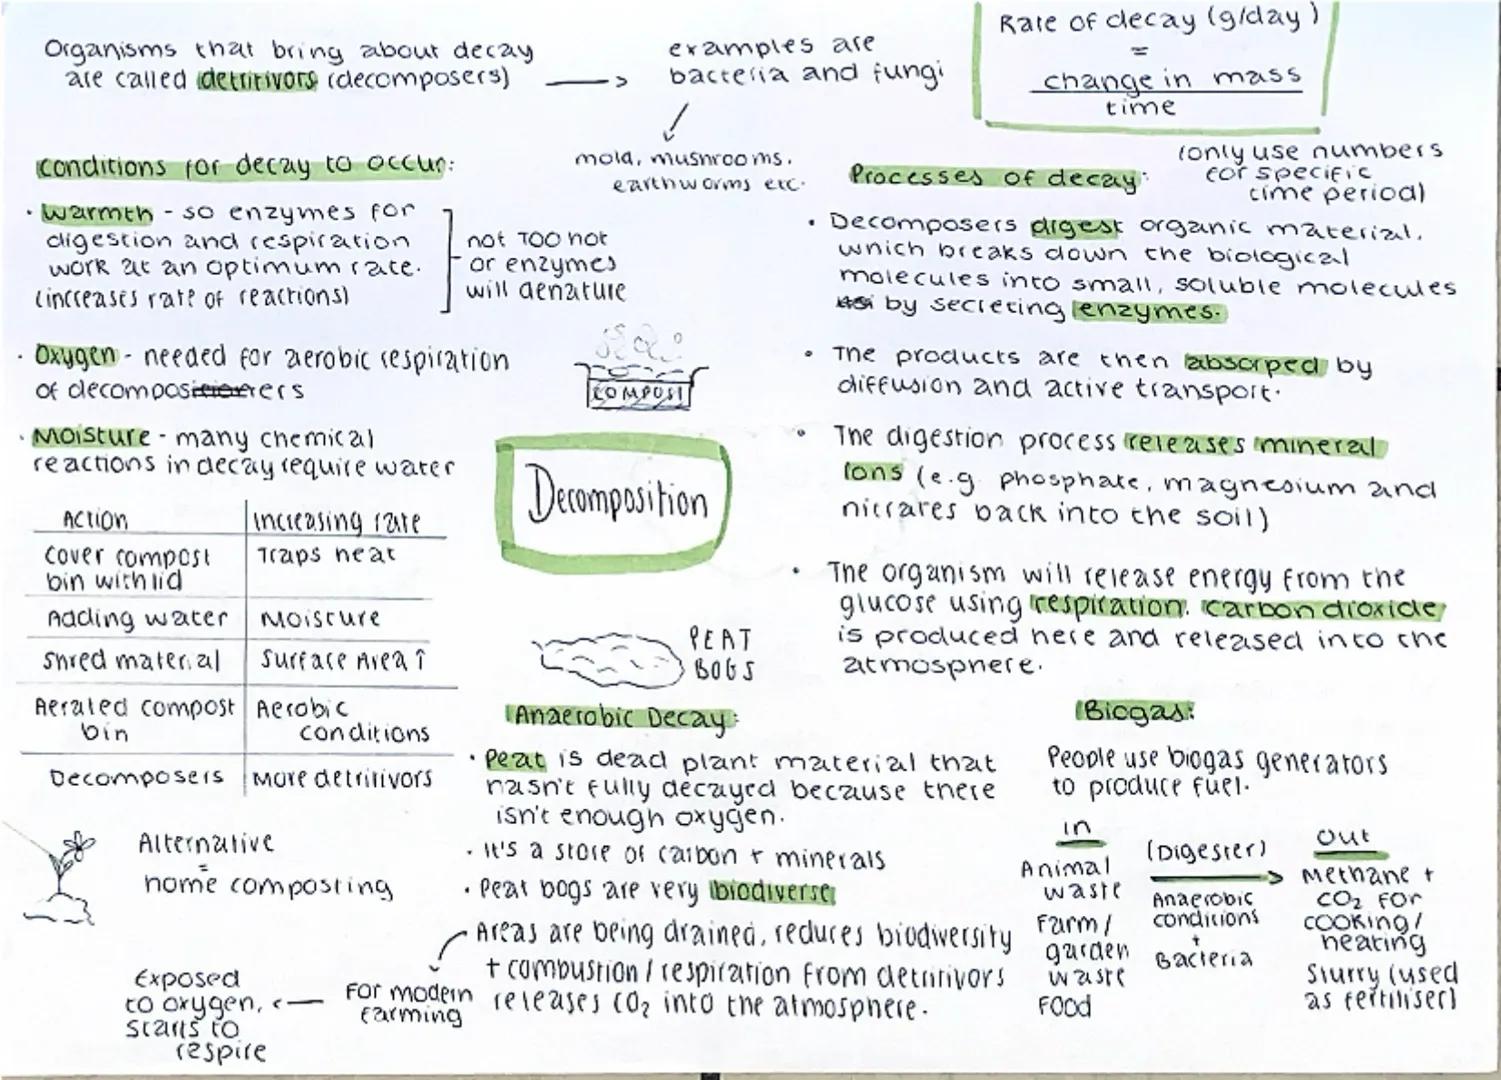 Organisms that bring about decay
are called detritivors (decomposers)
examples are
bacteria and fungi
mold, mushrooms,
earthworms etc.
Rate of decay (g/day)
=
change in mass
time
(only use numbers
for specific
time period)
Conditions for decay to occur:
· Warmth - so enzymes for
digestion and respiration
work at an optimum rate.
(increases rate of reactions)
not TOO hot
or enzymes
will denature
· Oxygen - needed for aerobic respiration
of decomposers
· Moisture - many chemical
reactions in decay require water
Action | Increasing rate
Cover compost bin with lid | Traps heat
Adding water | Moisture
Shred material | Surface Area ↑
Aerated compost bin | Aerobic conditions
Decomposers | More detritivors
Alternative
=
home composting
COMPOST
Decomposition
PEAT
BOGS
Anaerobic Decay:
· Peat is dead plant material that
hasn't fully decayed because there
isn't enough oxygen.
· It's a store of carbon + minerals
· Peat bogs are very biodiverse
Areas are being drained, reduces biodiversity
+ combustion / respiration from detritivors
releases CO₂ into the atmosphere.
For modern
farming
Exposed
to oxygen,
starts to
respire
Processes of decay:
• Decomposers digest organic material,
which breaks down the biological
molecules into small, soluble molecules
by secreting enzymes.
• The products are then absorped by
diffusion and active transport.
• The digestion process releases mineral
ions (e.g. phosphate, magnesium and
nitrates back into the soil)
• The organism will release energy from the
glucose using respiration. Carbon dioxide
is produced here and released into the
atmosphere.
Biogas:
People use biogas generators
to produce fuel.
In
Animal
waste
Farm/
garden
waste
Food
(Digester)
Anaerobic
conditions
+
Bacteria
Out
Methane +
CO₂ for
cooking/
heating
Slurry (used
as fertiliser)